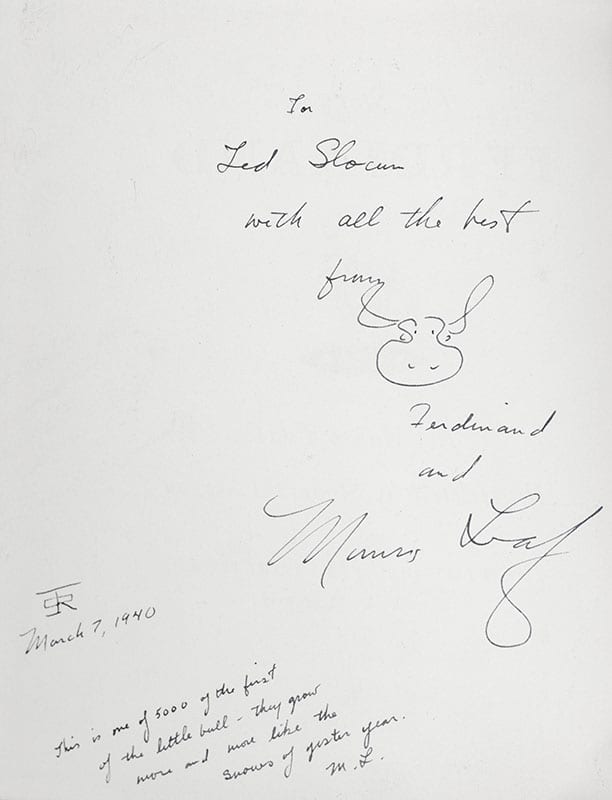 For
Ted Slocum
with all the best
from
Ferdinand
and
Munro Leaf
March 7, 1940
This is one of 5000 of the first
of the little bull - they grow
more and more like the
snows of yester year.
M.L.